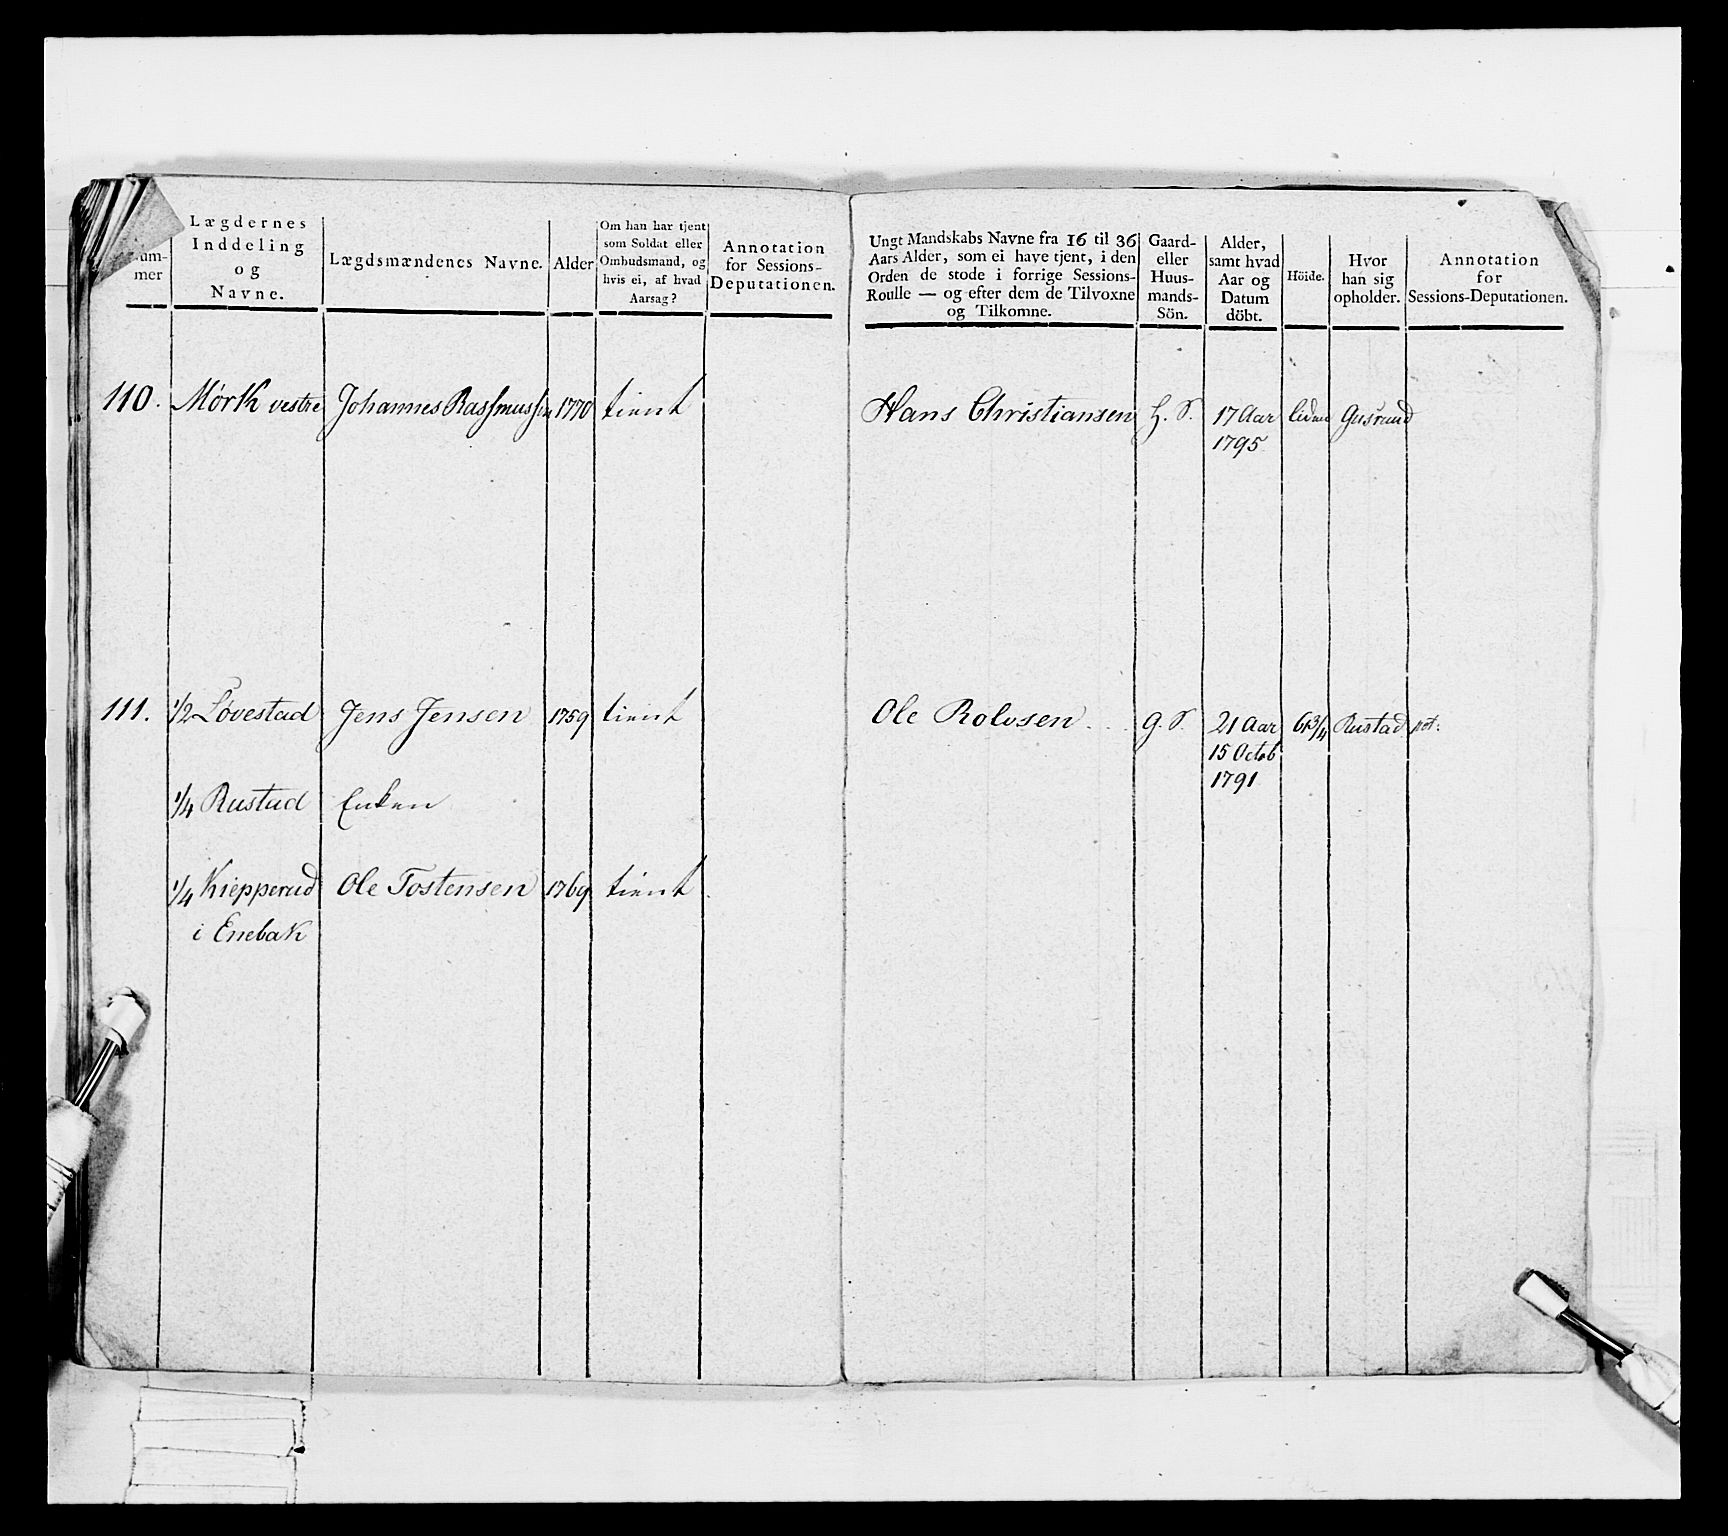 um-
mer
Lægdernes
Inddeling
og
Navne.
Lægdsmændenes Navne.
Alder
Om han har tjent
som Soldat eller
Ombudsmand, og
hvis ei, af hvad
Aarsag?
Annotation
for Sessions-
Deputationen.
Ungt Mandskabs Navne fra 16 til 36
Aars Alder, som ei have tjent, i den
Orden de stode i forrige Sessions-
Roulle — og efter dem de Tilvoxne
og Tilkomne.
Gaard-
eller
Huus-
mands-
Sön.
Alder,
samt hvad
Aar og
Datum
döbt.
Höide.
Hvor
han sig
opholder.
Annotation
for
Sessions-Deputationen.
110. Mørk vestre Johannes Rasmussen 1770 tient
Hans Christiansen H. S. 17 Aar liden Gusrud
1795
111. 1/2 Løvestad Jens Jensen 1759 tient
Ole Rolvsen g. S. 21 Aar Rustad
15 Octob
1791
1/4 Rustad Enken
1/4 Kiepperud Ole Tostensen 1769 tient
i Enebak